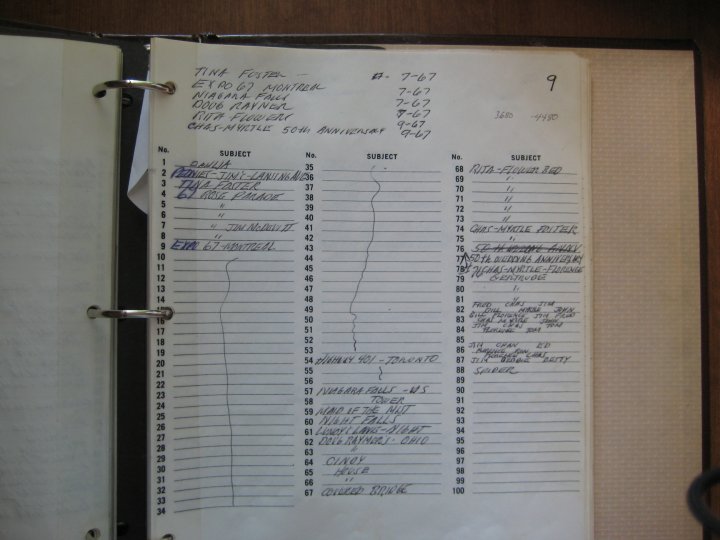 TINA FOSTER - 7-67
EXPO 67 MONTREAL 7-67
NIAGARA FALLS 7-67
DOUG RAYNER 7-67
RITA FLOWERS 9-67
CHAS-MYRTLE 50th ANNIVERSARY 9-67
9
3680 -4480
No. SUBJECT
1 DAHLIA
2 PEONIES-JIM'S-LANSING AVE
3 TINA FOSTER
4 67 ROSE PARADE
5 "
6 "
7 " JIM
8
9 EXPO 67-MONTREAL
10
11
12
13
14
15
16
17
18
19
20
21
22
23
24
25
26
27
28
29
30
31
32
33
34
No. SUBJECT
35
36
37
38
39
40
41
42
43
44
45
46
47
48
49
50
51
52
53
54 HIGHWAY 401 - TORONTO
55
56
57 NIAGARA FALLS - US
58 TOWER
59 MAID OF THE MIST
60 NIGHT FALLS
61 LUNDY'S LANE-NIGHT
62 DOUG RAYMERS-OHIO
63 "
64 CINDY
65 HOUSE
66 "
67 COVERED BRIDGE
No. SUBJECT
68 RITA-FLOWER BED
69 "
70 "
71 "
72 "
73 "
74 CHAS-MYRTLE FOSTER
75 "
76 50th WEDDING ANNIV
77 50th WEDDING ANNIVERSARY
78 CHAS-MYRTLE-FLORENCE
79 GERTRUDE
80 "
81 "
82 FRED CHAS JIM
BILL MARIE JOHN
83 BILL FLORENCE JIM FRED
CHAS MYRTLE JOHN
84 JIM CHAS TOM
FLORENCE TOM
85
86 JIM ED
FLORENCE
87 JIM BETTY
88 SPIDER
89
90
91
92
93
94
95
96
97
98
99
100